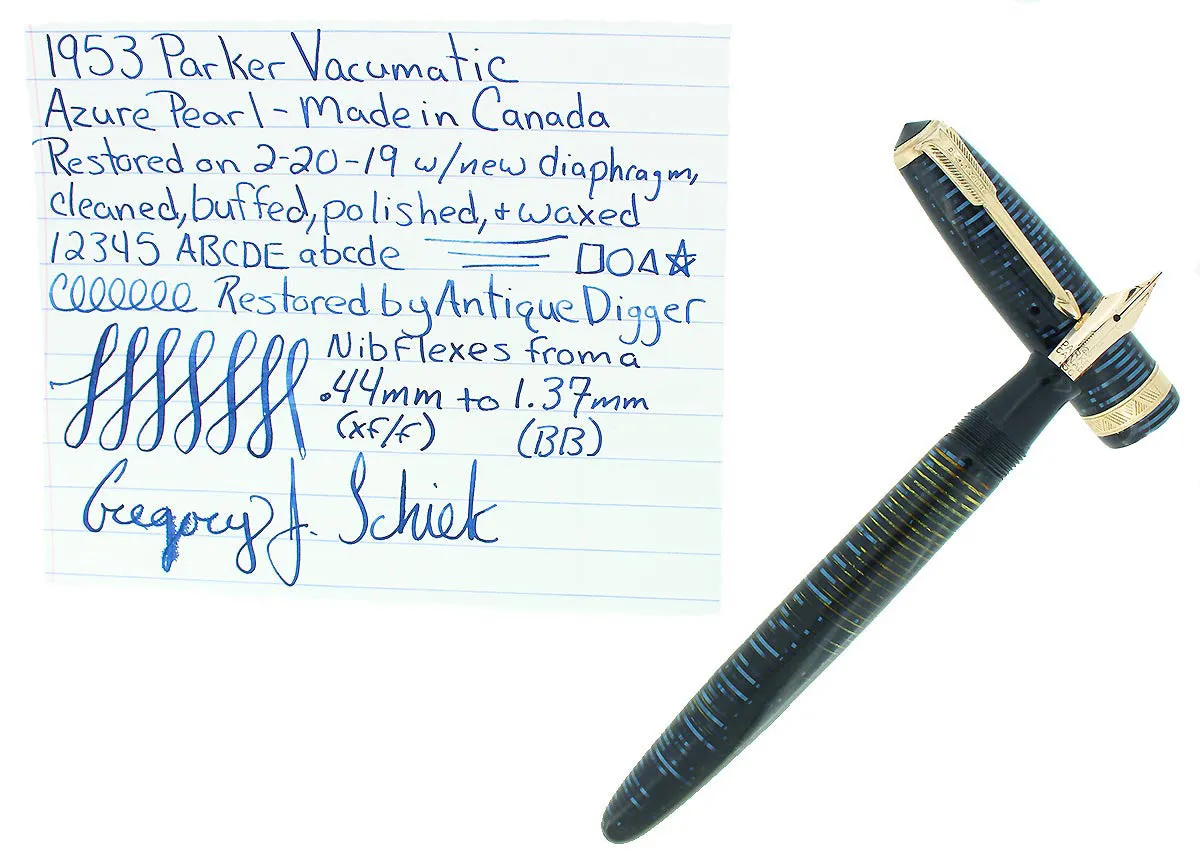 1953 Parker Vacumatic
Azure Pearl - Made in Canada
Restored on 2-20-19 w/new diaphragm,
cleaned, buffed, polished, + waxed
12345 ABCDE abcde
Restored by Antique Digger
Nib Flexes from a
.44mm to 1.37mm
(xf/f) (BB)
Gregory J. Schiek